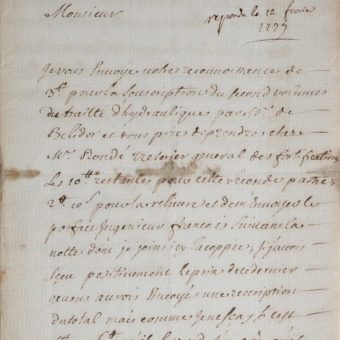 Monsieur
repondu le 12 fevrie
Je vous Envoye notre reconnoissance de
pour la Souscription du second volume
du traitté d'hydraulique par Mr. de
Belidor et vous prie de prendre chez
Mr. Rondé tresorier general des fortification
les 10# restantes pour cette seconde partie
2# 10s pour la relieure et de m'Envoyer le
parfait Ingenieur francois suivant la
notte dont je joins icy la coppie, si j'avois
sceu positivement le prix de ce dernier
je vous aurois Envoyé une rescription
du total mais comme je ne scay s'il est